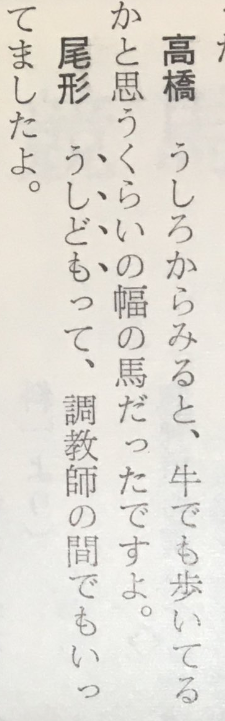 高橋　うしろからみると、牛でも歩いてる
かと思うくらいの幅の馬だったですよ。
尾形　うしどもって、調教師の間でもいっ
てましたよ。